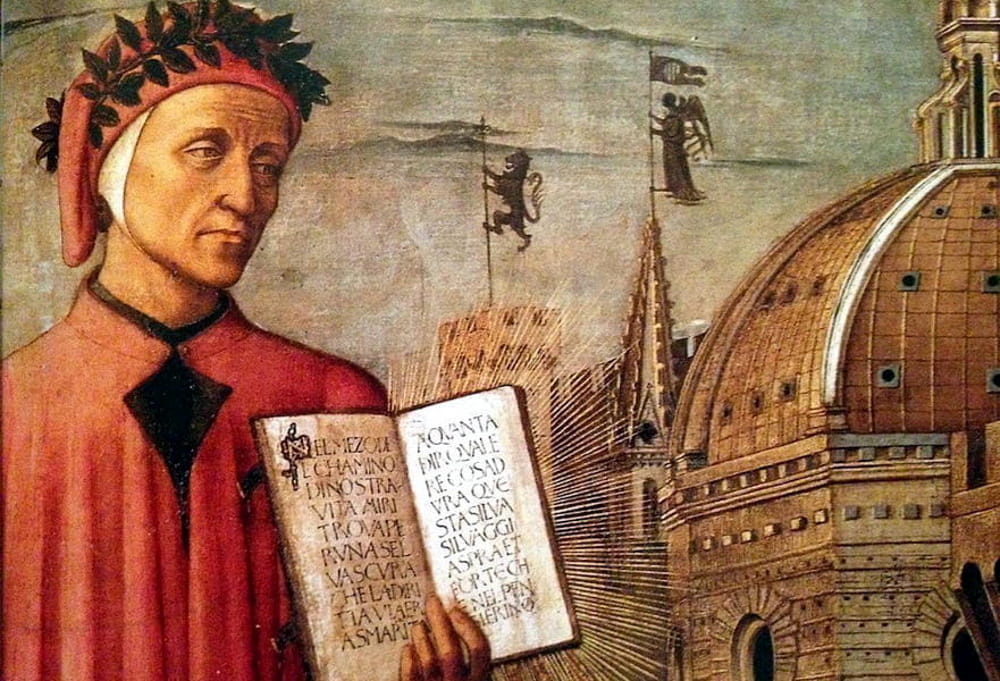 NELMEZODE
L CHAMINO
DINOSTRA
VITA MIRI
TROVAPE
RVNASEL
VASCVRA
CHELADIRI
TIAVIAER
ASMARITA
AQVANTA
DIROVALE
RECOSAD
VRA QVE
STASILVA
SILVAGGI
ASPRAET
FORTECH
ENELPEN